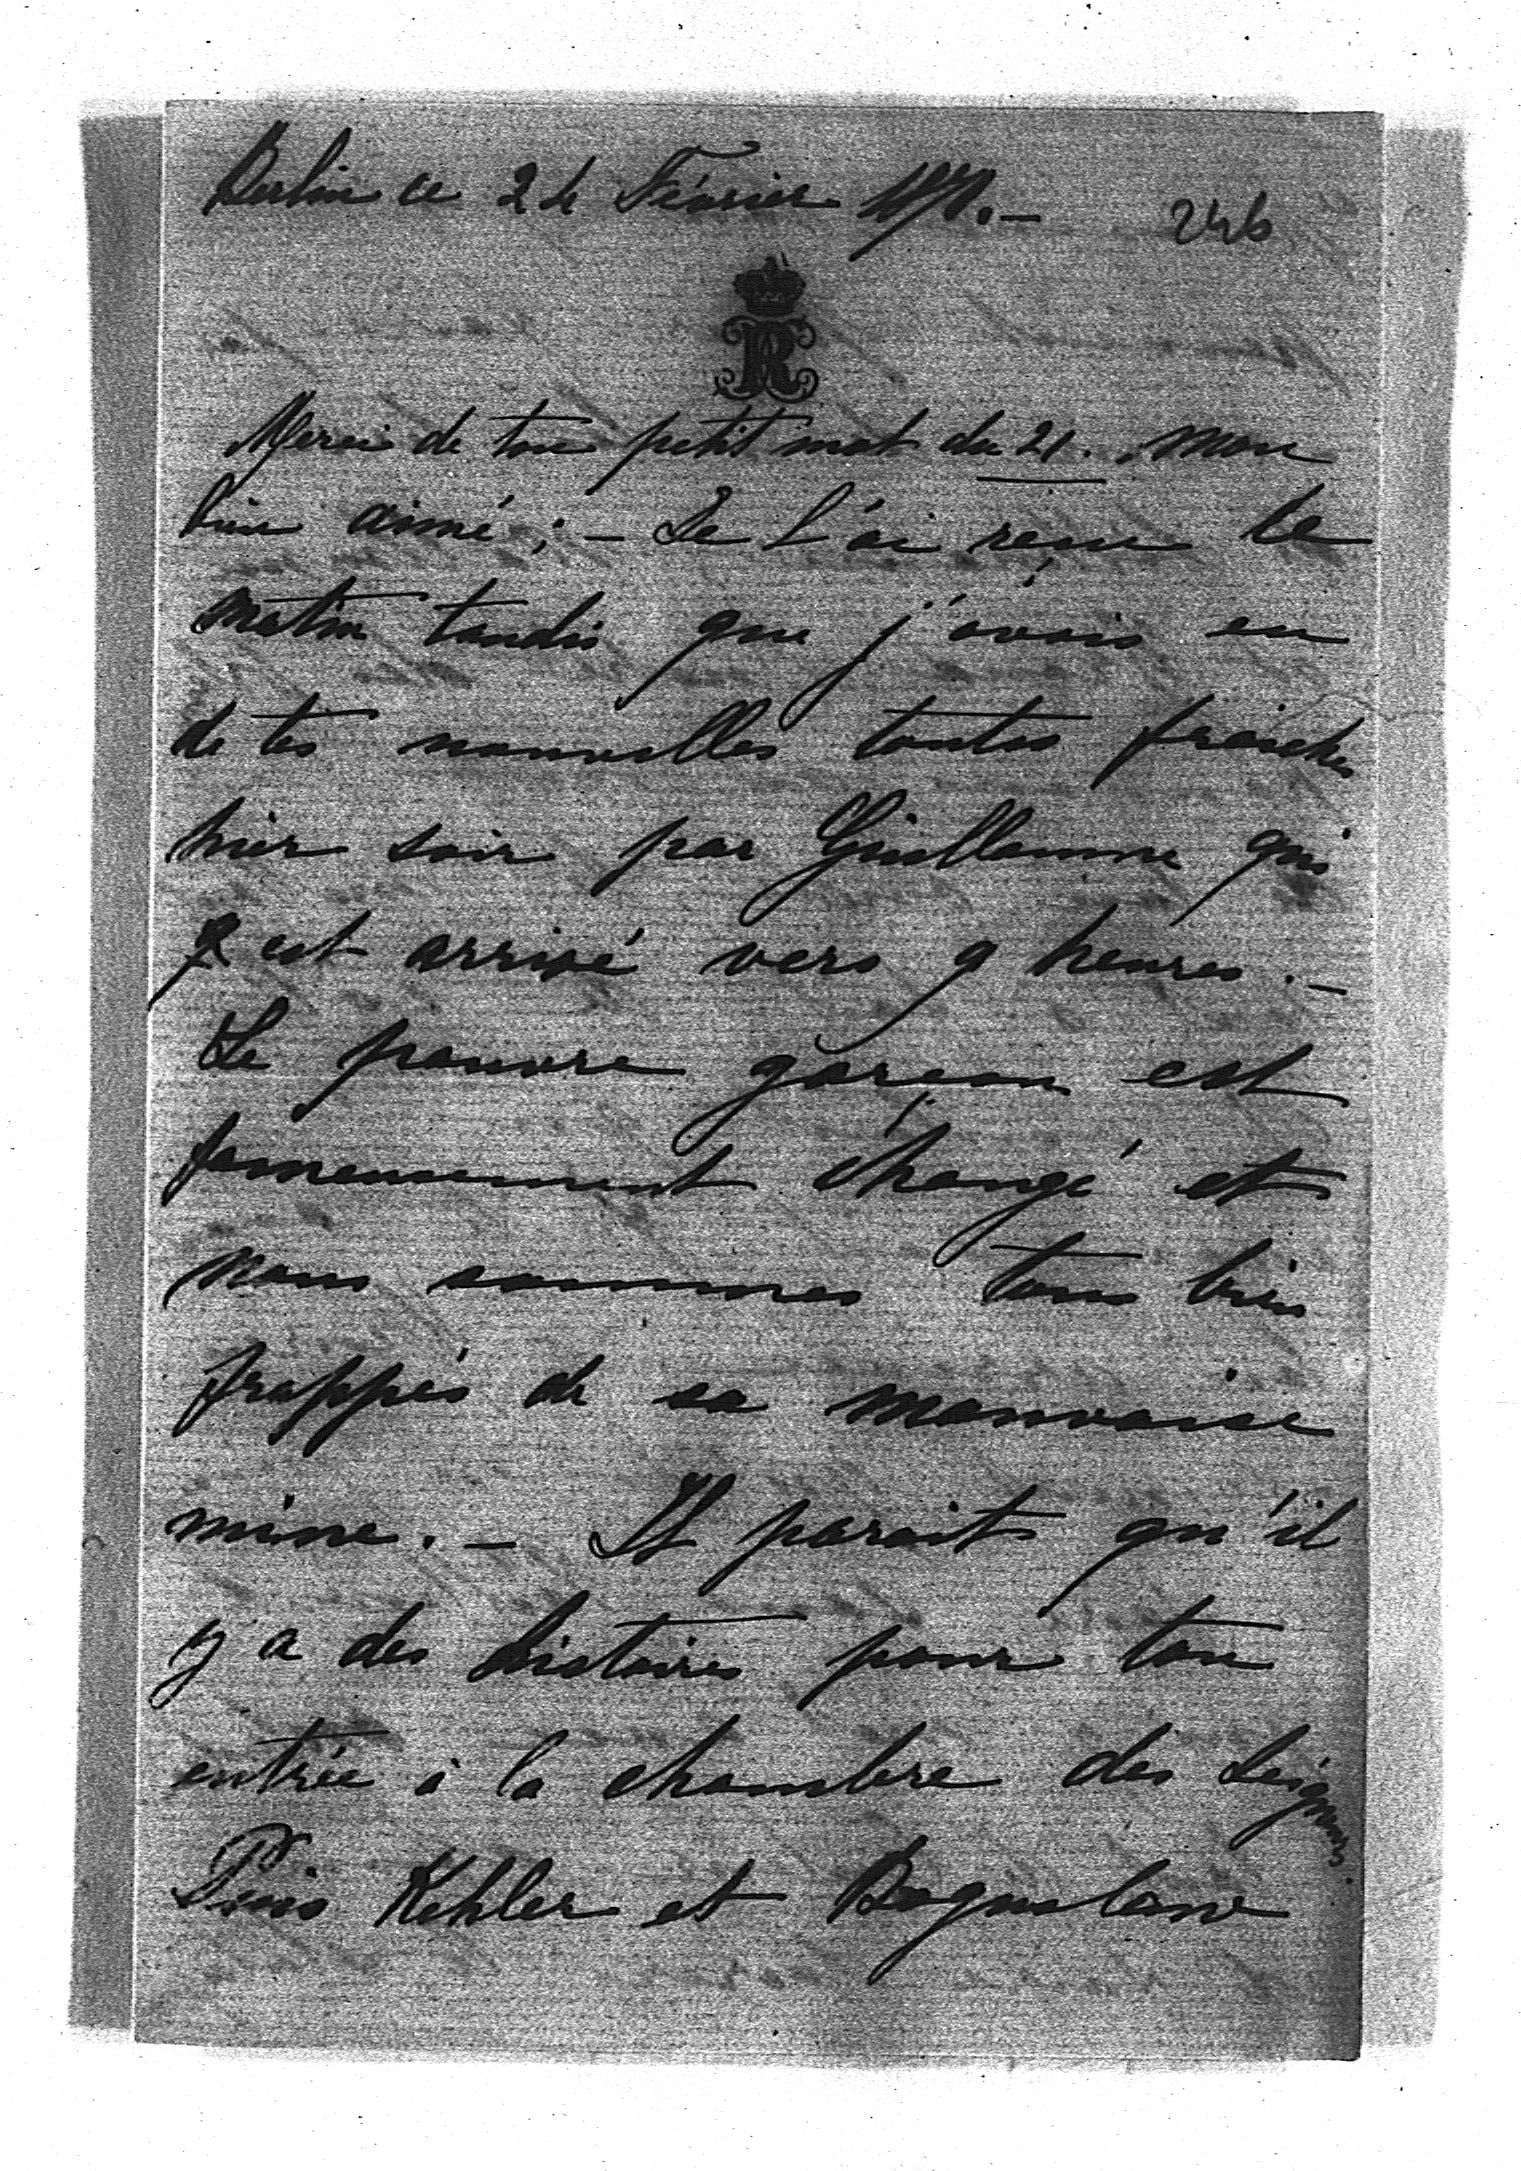 Berlin ce 24 Février
246
R
Merci de ton petit mot du 21. mon
bien aimé; – Je l'ai reçu ce
matin tandis que j'avais eu
de tes nouvelles toutes fraiches
hier soir par Guillaume qui
est arrivé vers 9 heures. –
Le pauvre garçon est
fameusement changé et
nous sommes tous bien
frappés de sa mauvaise
mine. – Il parait qu'il
y a des histoires pour ton
entrée à la chambre des Seigneurs
Kehler et Boguslaw